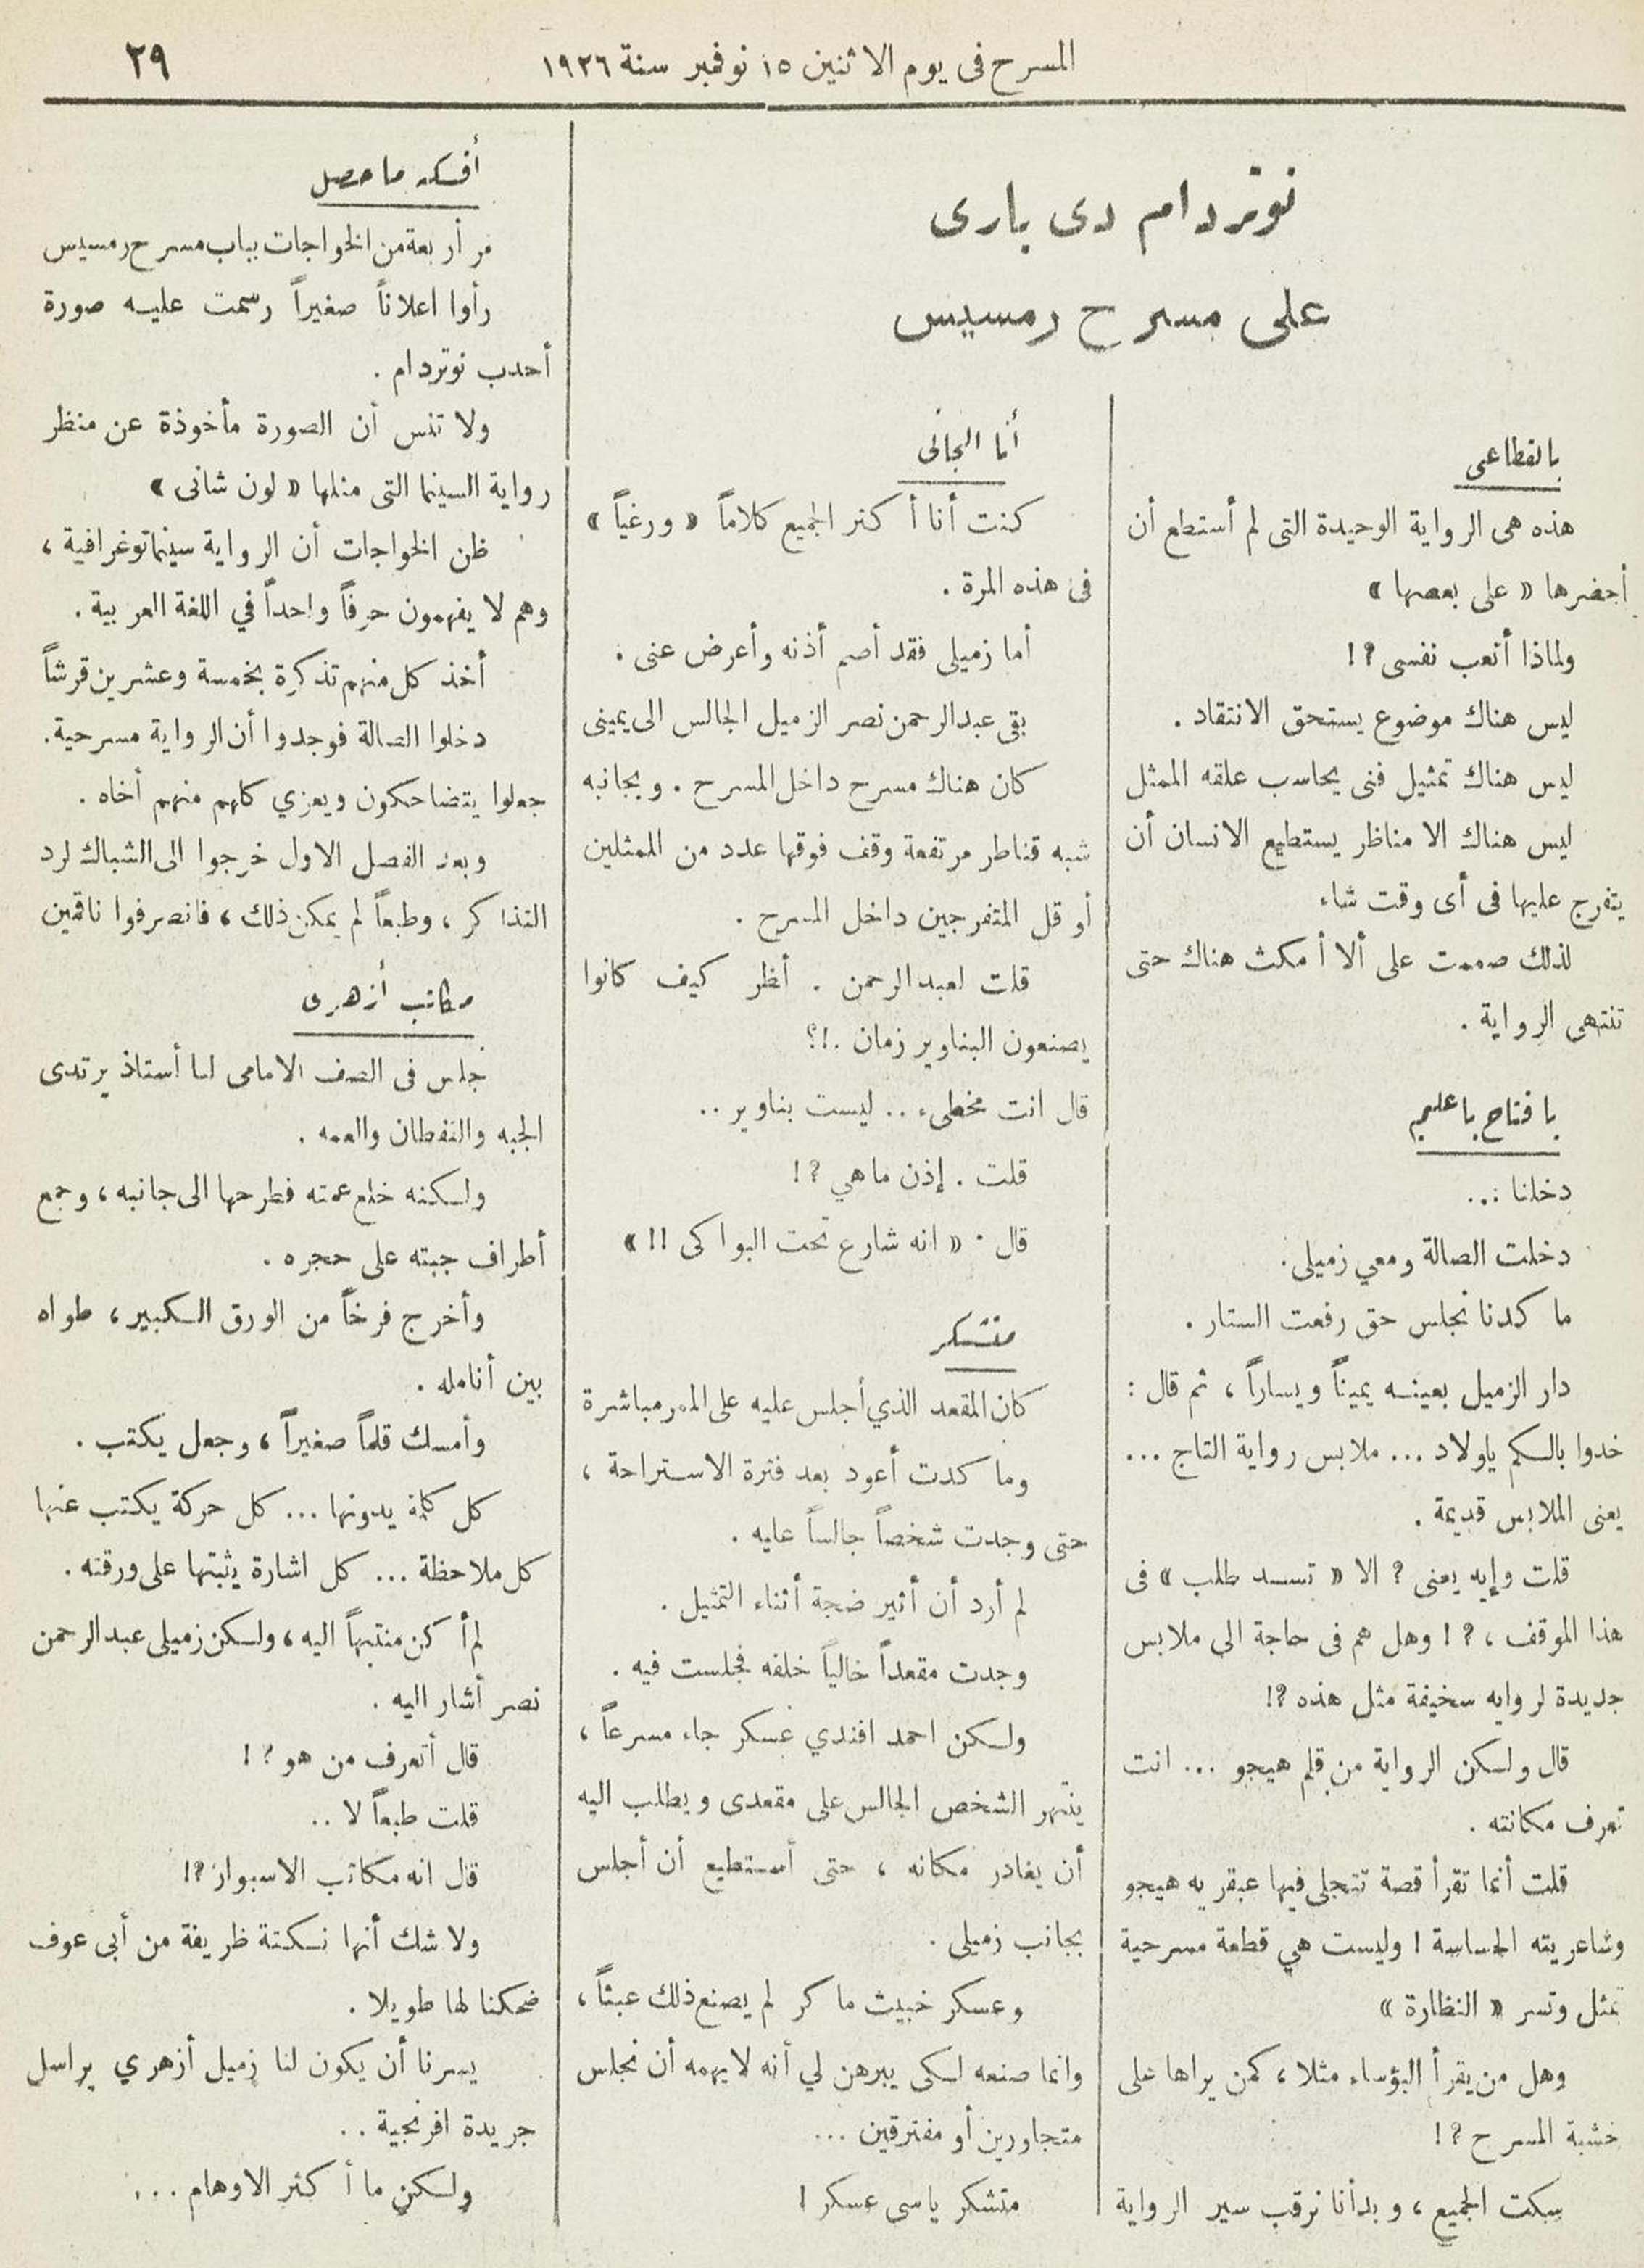 المسرح فى يوم الاثنين ١٥ نوفمبر سنة ١٩٢٦
٢٩
نوتردام دى بارى
على مسرح رمسيس
يا لفظاعى
هذه هى الرواية الوحيدة التى لم أستطع أن
أحضرها « على بعضها »
ولماذا أتعب نفسى ؟!
ليس هناك موضوع يستحق الانتقاد .
ليس هناك تمثيل فنى يحاسب علقه الممثل
ليس هناك الا مناظر يستطيع الانسان أن
يتفرج عليها فى أى وقت شاء
لذلك صممت على ألا أمكث هناك حتى
تنتهى الرواية .
يا فتاح يا عليم
دخلنا ...
دخلت الصالة ومعي زميلى .
ما كدنا نجلس حق رفعت الستار .
دار الزميل بعينه يميناً ويساراً ، ثم قال :
خدوا بالكم ياولاد ... ملابس رواية التاج ...
يعنى الملابس قديمة .
قلت وإيه يعنى ؟ الا « تسد طلب » فى
هذا الموقف ، ؟! وهل هم فى حاجة الى ملابس
جديدة لروايه سخيفة مثل هذه ؟!
قال ولكن الرواية من قلم هيجو ... انت
تعرف مكانته .
قلت أنما تقرأ قصة تتجلى فيها عبقريه هيجو
وشاعريته الحساسة ! وليست هي قطعة مسرحية
تمثل وتسر « النظارة »
وهل من يقرأ البؤساء مثلا ، كمن يراها على
خشبة المسرح ؟!
سكت الجميع ، وبدأنا نرقب سير الرواية
أنا الجانى
كنت أنا أكثر الجميع كلاماً « ورغياً »
فى هذه المرة .
أما زميلى فقد أصم أذنه وأعرض عنى .
بقى عبدالرحمن نصر الزميل الجالس الى يمينى
كان هناك مسرح داخل المسرح . وبجانبه
شبه قناطر مرتفعة وقف فوقها عدد من الممثلين
أو قل المتفرجين داخل المسرح .
قلت لعبدالرحمن . أظر كيف كانوا
يصنعون البناوير زمان .!؟
قال انت مخطىء .. ليست بناوير ..
قلت . إذن ماهي ؟!
قال . « انه شارع تحت البواكى !! »
متشكر
كان المقعد الذي أجلس عليه على الممر مباشرة
وما كدت أعود بعد فترة الاستراحة ،
حتى وجدت شخصاً جالساً عليه .
لم أرد أن أثير ضجة أثناء التمثيل .
وجدت مقعداً خالياً خلفه فجلست فيه .
ولكن احمد افندي عسكر جاء مسرعاً ،
ينتهر الشخص الجالس على مقعدى ويطلب اليه
أن يغادر مكانه ، حتى أستطيع أن أجلس
بجانب زميلى .
وعسكر خبيث ماكر لم يصنع ذلك عبثاً ،
وانما صنعه لكى يبرهن لي أنه لا يهمه أن نجلس
متجاورين أو مفترقين ...
متشكر ياسى عسكر !
أفكه ما حصل
مر أربعة من الخواجات بباب مسرح رمسيس
رأوا اعلاناً صغيراً رسمت عليه صورة
أحدب نوتردام .
ولا تنس أن الصورة مأخوذة عن منظر
رواية السينما التى مثلها « لون شانى »
ظن الخواجات أن الرواية سينماتوغرافية ،
وهم لا يفهمون حرفاً واحداً في اللغة العربية .
أخذ كل منهم تذكرة بخمسة وعشرين قرشاً
دخلوا الصالة فوجدوا أن الرواية مسرحية .
جعلوا يتضاحكون ويعزي كلهم منهم أخاه .
وبعد الفصل الاول خرجوا الى الشباك لرد
التذاكر ، وطبعاً لم يمكن ذلك ، فانصرفوا ناقمين
مكاتب أزهرى
جلس فى الصف الامامى لنا أستاذ يرتدى
الجبه والقفطان والعمه .
ولكنه خلع عمته فطرحها الى جانبه ، وجمع
أطراف جبته على حجره .
وأخرج فرخاً من الورق الكبير ، طواه
بين أنامله .
وأمسك قلماً صغيراً ، وجعل يكتب .
كل كلمة يدونها ... كل حركة يكتب عنها
كل ملاحظة ... كل اشارة يثبتها على ورقته .
لم أكن منتبهاً اليه ، ولكن زميلى عبدالرحمن
نصر أشار اليه .
قال أتعرف من هو ؟!
قلت طبعاً لا ..
قال انه مكاتب الاسبوار ؟!
ولا شك أنها نكتة ظريفة من أبى عوف
ضحكنا لها طويلا .
يسرنا أن يكون لنا زميل أزهري يراسل
جريدة افرنجية ..
ولكن ما أكثر الاوهام ...